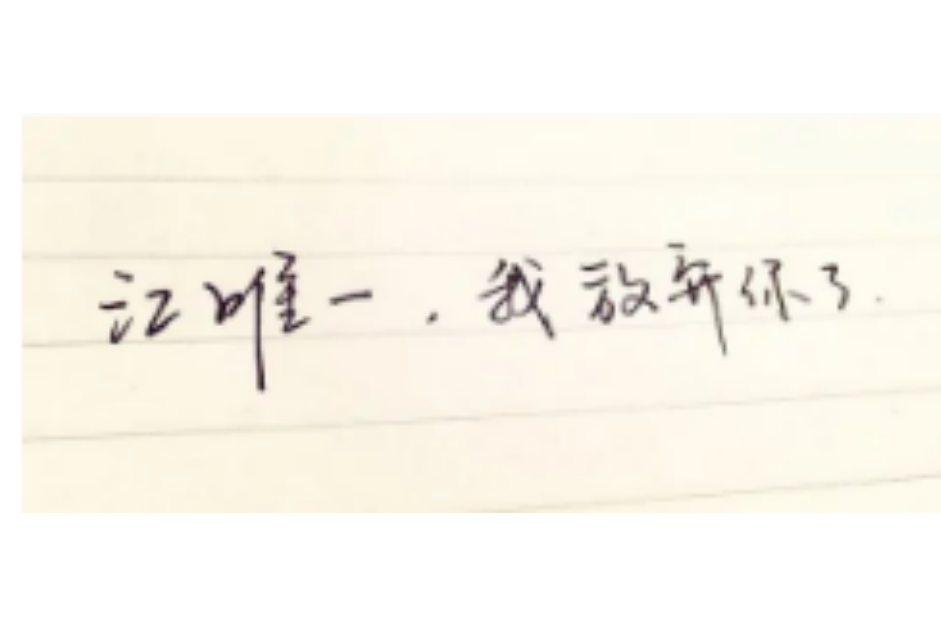 江唯一，我放弃你了.